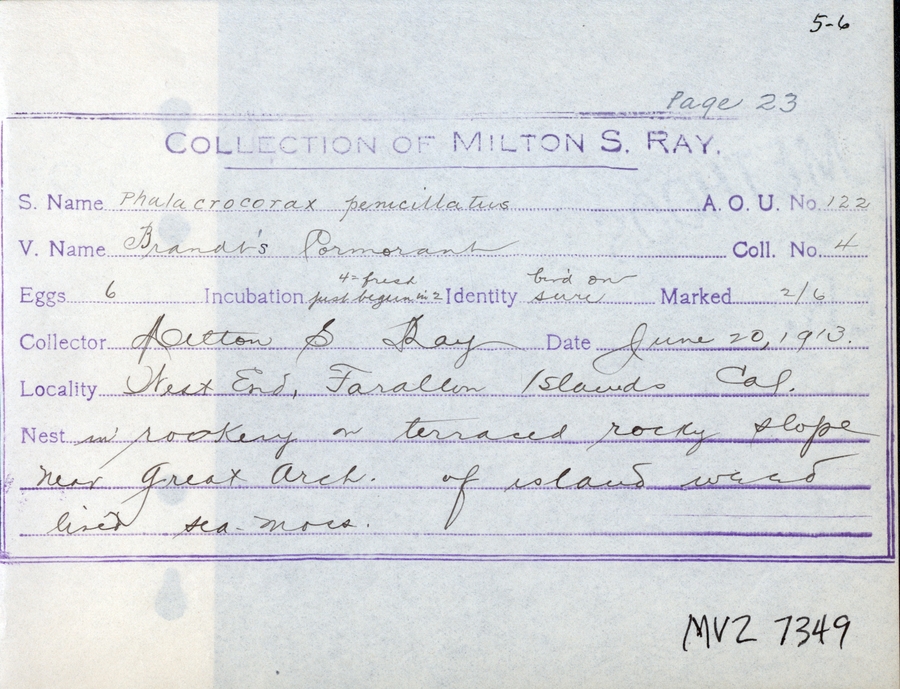 5-6
Page 23
COLLECTION OF MILTON S. RAY.
S. Name Phalacrocorax penicillatus A. O. U. No. 122
V. Name Brandt's Cormorant Coll. No. 4
Eggs 6 Incubation 4=fresh just begun in 2 Identity bird on sure Marked 2/6
Collector Milton S Ray Date June 20, 1913.
Locality West End, Farallon Islands Cal.
Nest in rookery on terraced rocky slope
near Great Arch. of island weed
lined sea-moss.
MVZ 7349